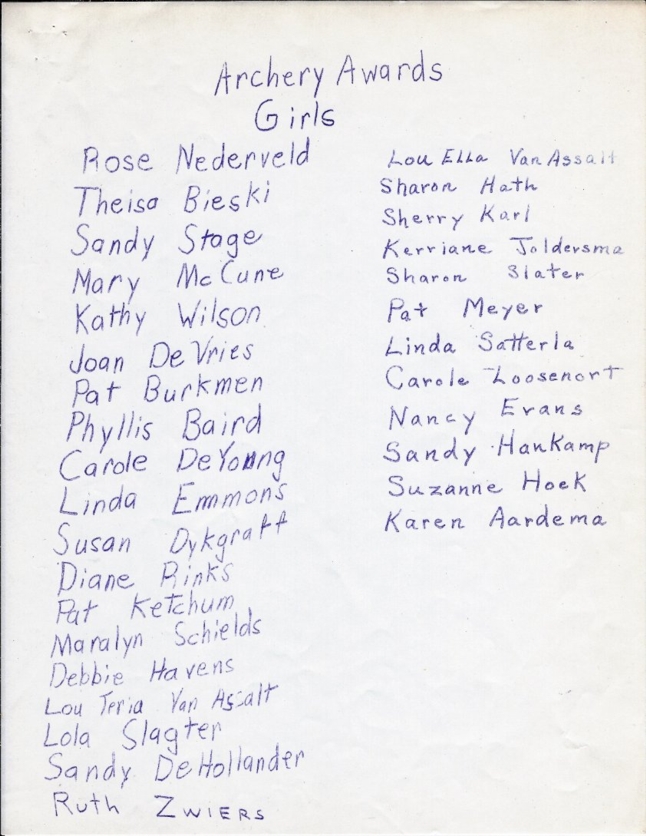 Archery Awards
Girls
Rose Nederveld
Theisa Bieski
Sandy Stage
Mary McCune
Kathy Wilson
Joan DeVries
Pat Burkmen
Phyllis Baird
Carole DeYoung
Linda Emmons
Susan Dykgraff
Diane Rinks
Pat Ketchum
Maralyn Schields
Debbie Havens
Lou Teria Van Assalt
Lola Slagter
Sandy DeHollander
Ruth Zwiers
Lou Ella Van Assalt
Sharon Hath
Sherry Karl
Kerriane Joldersma
Sharon Slater
Pat Meyer
Linda Satterla
Carole Loosenort
Nancy Evans
Sandy Hankamp
Suzanne Hoek
Karen Aardema